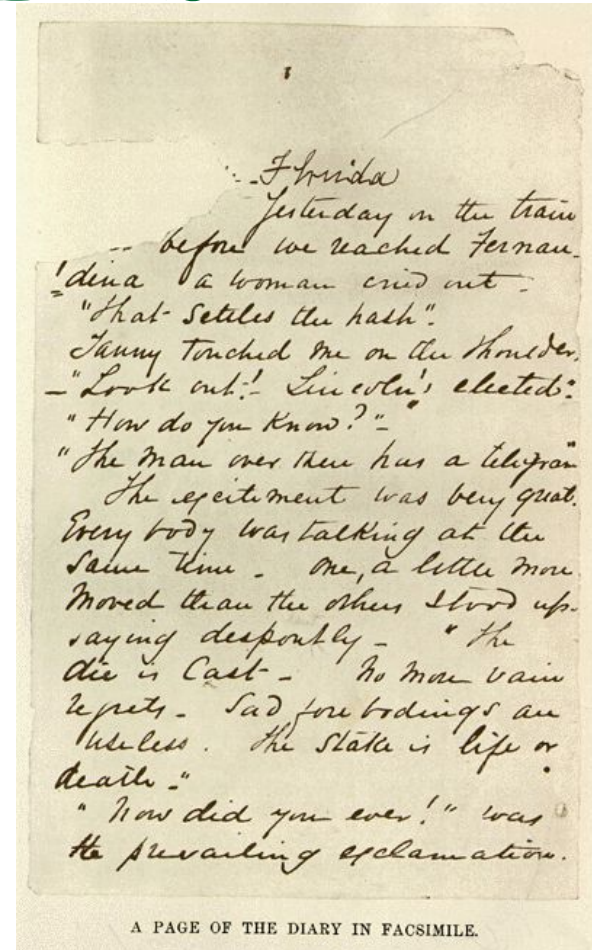 1
Florida
Yesterday on the train
before we reached Fernan-
dina a woman cried out -
"That settles the hash".
Tanny touched me on the shoulder.
- "Look out! - Lincoln's elected".
"How do you know?" -
"The man over there has a telegram"
The excitement was very great.
Every body was talking at the
same time - One, a little more
moved than the others stood up -
saying despontly - "The
die is cast - No more vain
regrets - Sad fore bodings are
useless. The stake is life or
death -"
"Now did you ever!" was
the prevailing exclamation.
A PAGE OF THE DIARY IN FACSIMILE.